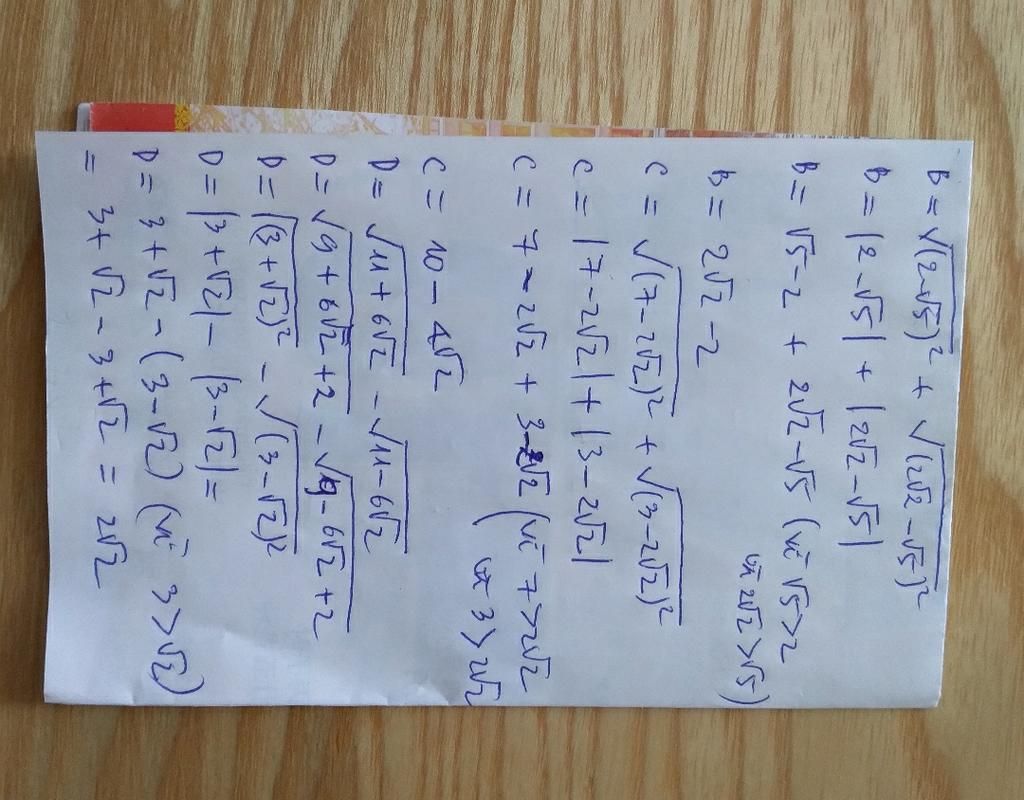 B = √(2-√5)² + √(2√2 - √5)²
B = |2-√5| + |2√2 - √5|
B = √5-2 + 2√2-√5 (vì √5>2
và 2√2 > √5)
B = 2√2 - 2
C = √(7-2√2)² + √(3-2√2)²
C = |7-2√2| + |3-2√2|
C = 7-2√2 + 3-2√2 (vì 7>2√2
và 3>2√2
C = 10 - 4√2
D = √11+6√2 - √11-6√2
D = √9+6√2+2 - √9-6√2+2
D = √(3+√2)² - √(3-√2)²
D = |3+√2| - |3-√2| =
D = 3+√2 - (3-√2) (vì 3>√2)
= 3+√2 - 3+√2 = 2√2